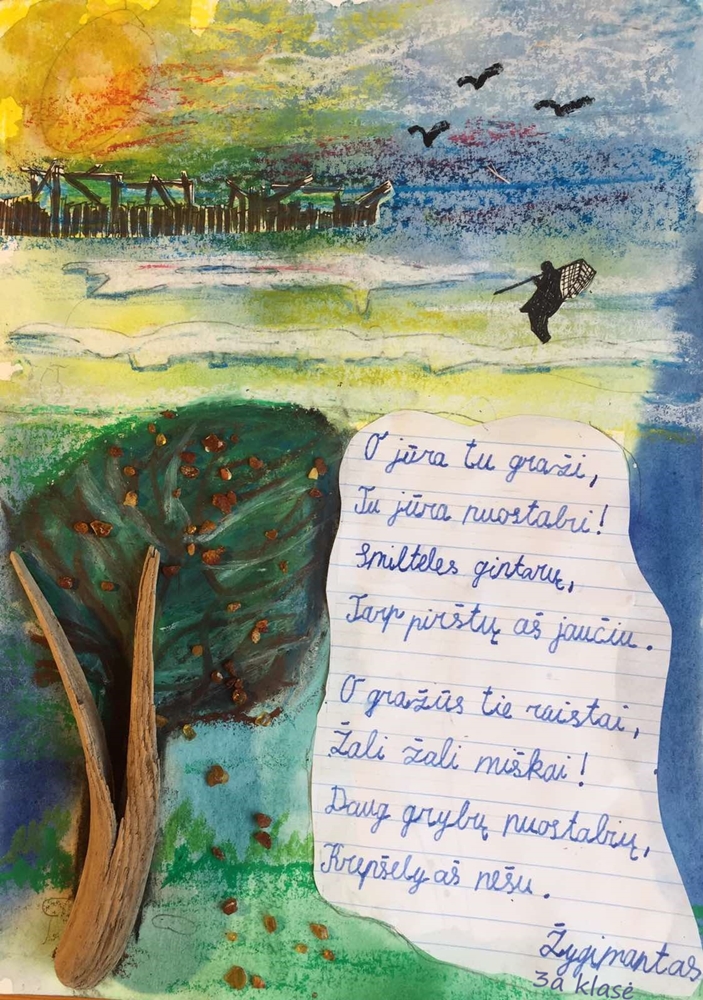 O jūra tu graži,
Tu jūra nuostabi!
Smilteles gintarų,
Tarp pirštų aš jaučiu.
O gražūs tie raistai,
Žali žali miškai!
Daug grybų nuostabių,
Krepšely aš nešu.
Žygimantas
3a klasė